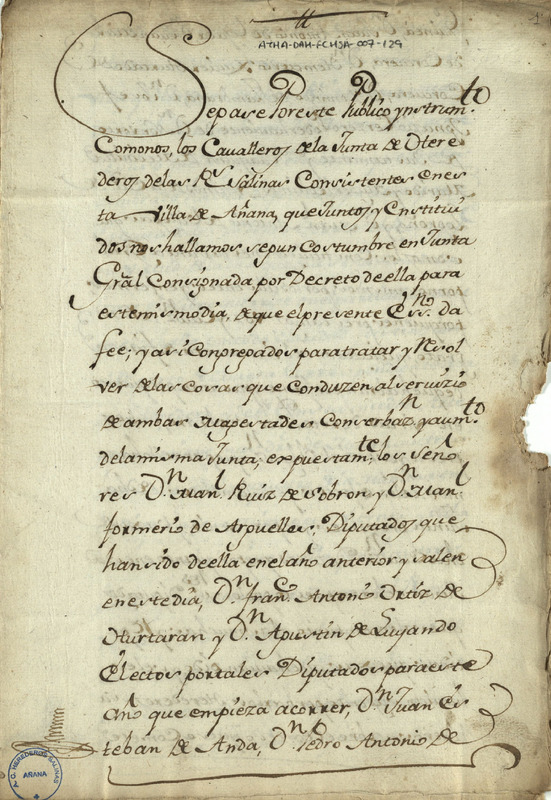 1
ATHA-DAH-FCHSA-007-129
Sepase Por este Publico ynstrumto.
Comonos, los Cavalleros dela Junta de Otere
deros delas Rs. Salinas Consistentes enes
ta Villa de Añana, que Juntos y Enstitui
dos nos hallamos segun Costumbre en Junta
Gral Consignada por Decreto de ella para
este mismo dia, de que el presente Essno. da
fee; y asi Congregados para tratar y Resol
ver de las Cosas que Conduzen al servizio
de ambas Magestades Converbazn. y aumto
dela misma Junta, expuestamte. los Seño
res Dn. Manl. Ruiz de Sobron y Dn. Manl.
formerio de Arguelles, Diputados que
han sido de ella en el año anterior y salen
en este dia, Dn. Franco. Antonio Ortiz de
Oturtaran y Dn. Agustin de Luyando
Electos por tales Diputados para este
año que empieza a correr, Dn. Juan Es
teban de Anda, Dn. Pedro Antonio de
A. C. HEREDEROS SALINAS
AÑANA